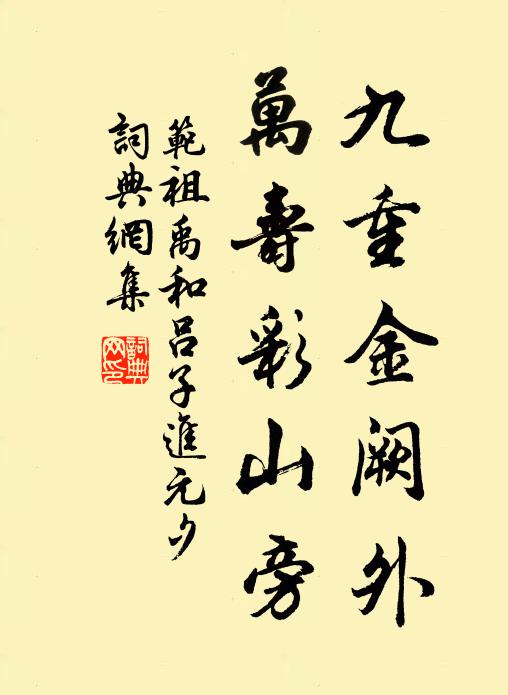 九重金阙外
萬壽彩山旁
範祖禹和呂子進元夕
詞典網集
詞典
网印